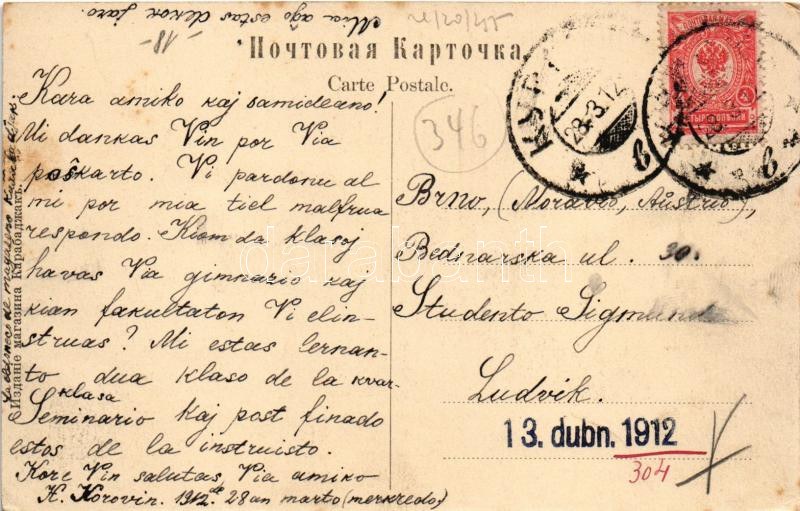 Mia aĝo estas dekok jaro.
-18-
Почтовая Карточка.
Carte Postale.
346
Kara amiko kaj samideano!
Mi dankas Vin por Via
poŝkarto. Vi pardonu al
mi por mia tiel malfrua
respondo. Kiom da klasoj
havas Via gimnazio kaj
kian fakultaton Vi elin-
struas? Mi estas lernan-
to dua klaso de la kvar-
klasa
Seminario kaj post finado
estos de la instruisto.
Kore Vin salutas, Via amiko
K. Korovin. 1912 de 28an marto (merkredo)
Изданіе магазина Карабаджакъ.
КУР
28-3.12
Brno, (Moravio, Aŭstrio),
Bednarska ul. 30.
Studento Sigmund
Ludvik.
13. dubn. 1912
304
darabanth